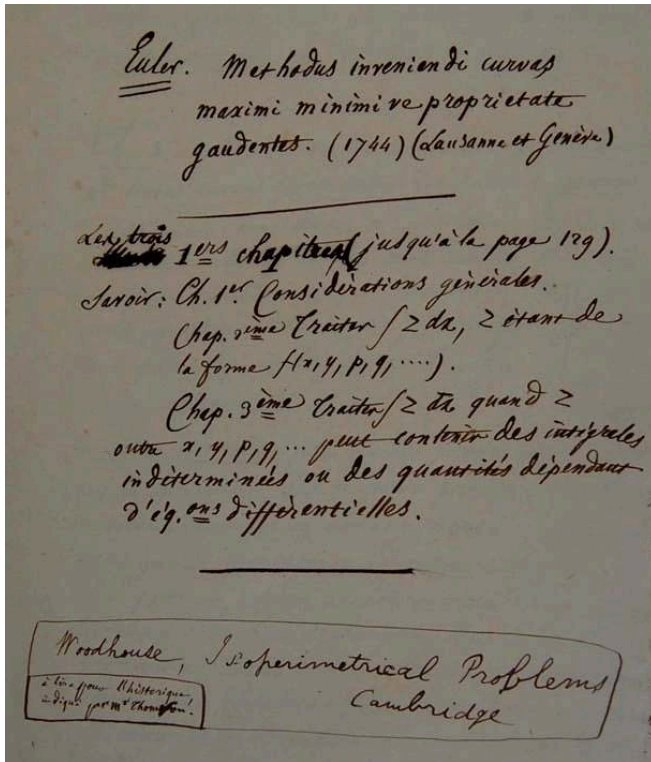 Euler. Methodus inveniendi curvas
maximi minimi ve proprietate
gaudentes. (1744) (Lausanne et Genève)
Les trois
1ers chapitres (jusqu'à la page 129).
Savoir: Ch. 1er. Considérations générales.
Chap. 2ème Traiter ∫Z dx, Z étant de
la forme f(x, y, p, q, ....).
Chap. 3ème Traiter ∫Z dx quand Z
outre x, y, p, q, ... peut contenir des intégrales
indéterminées ou des quantités dépendant
d'éq.ons différentielles.
Woodhouse, Isoperimetrical Problems
Cambridge
à lire pour l'historique,
indiqué par Mr Thomson.